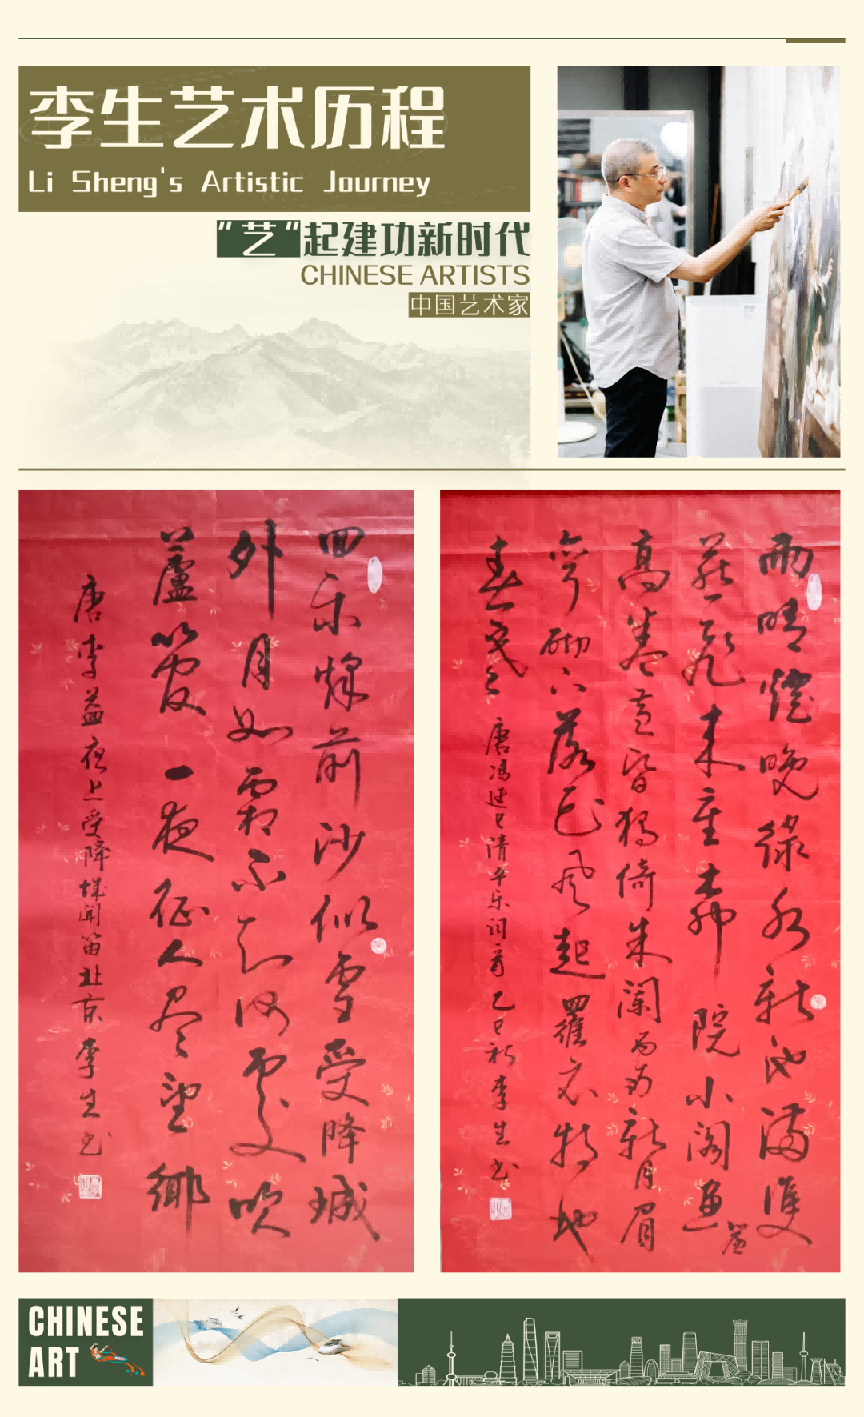 李生艺术历程
Li Sheng's Artistic Journey
“艺”起建功新时代
CHINESE ARTISTS
中国艺术家
回乐烽前沙似雪受降城
外月如霜不知何處吹
蘆管一夜征人尽望鄉
唐李益夜上受降城闻笛北京李生书
雨晴烟晚绿水新池满雙
燕飞来垂柳院小阁画簾
高卷黄昏独倚朱阑西南新月眉
弯砌下落花风起羅衣特地
春寒
唐冯延巳清平乐词 乙巳 李生书
CHINESE
ART